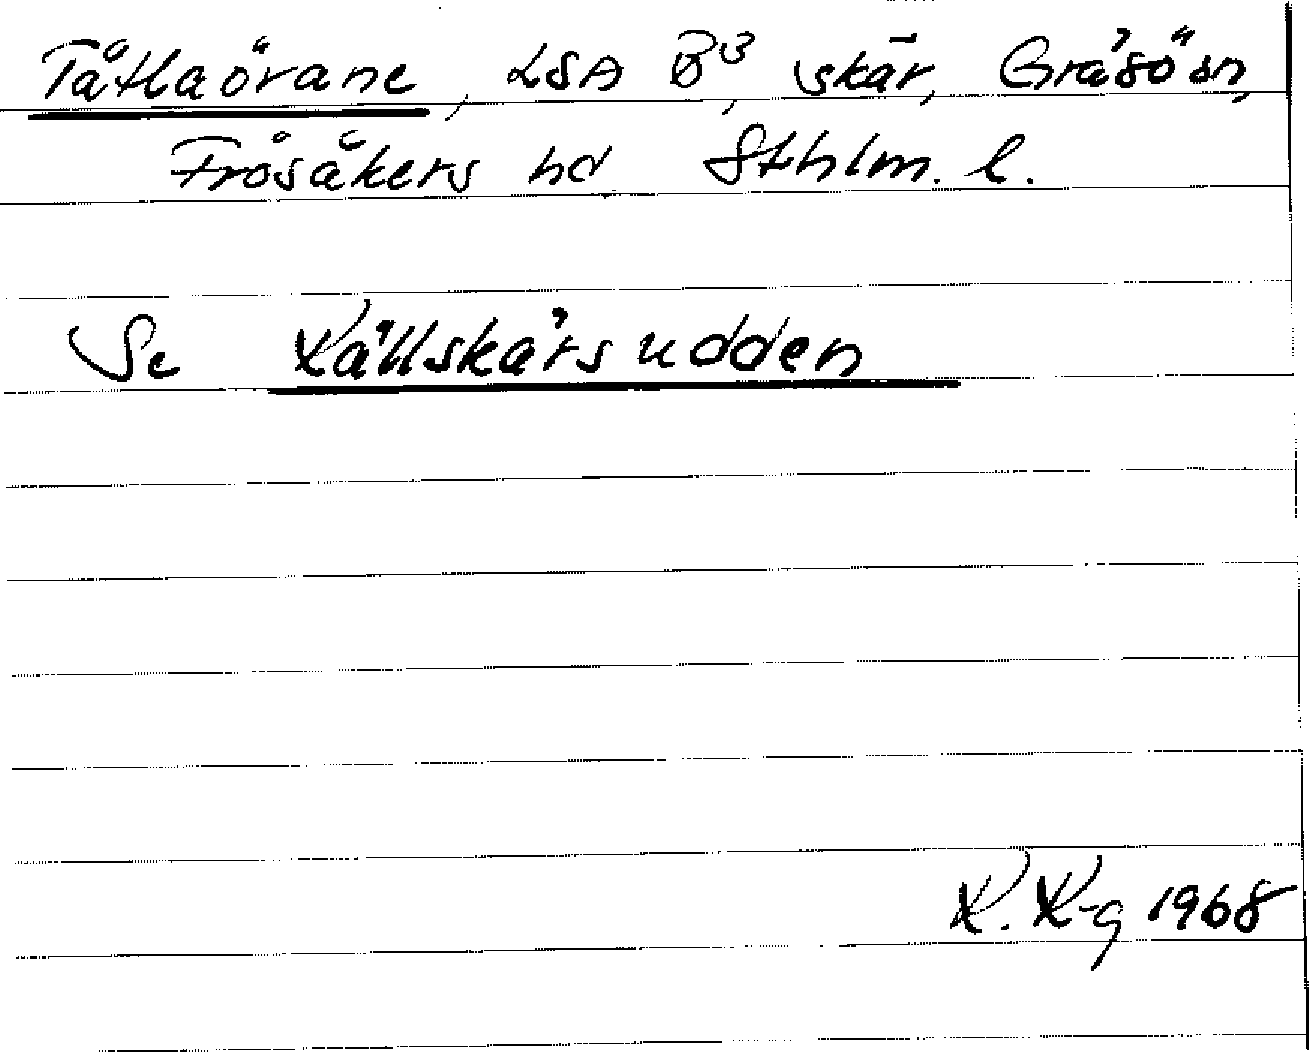 Tåtlaörane, LSA B³, skär, Gräsö sn,
Frösåkers hd Sthlm. l.
Se Källskärsudden
K. K-g 1968